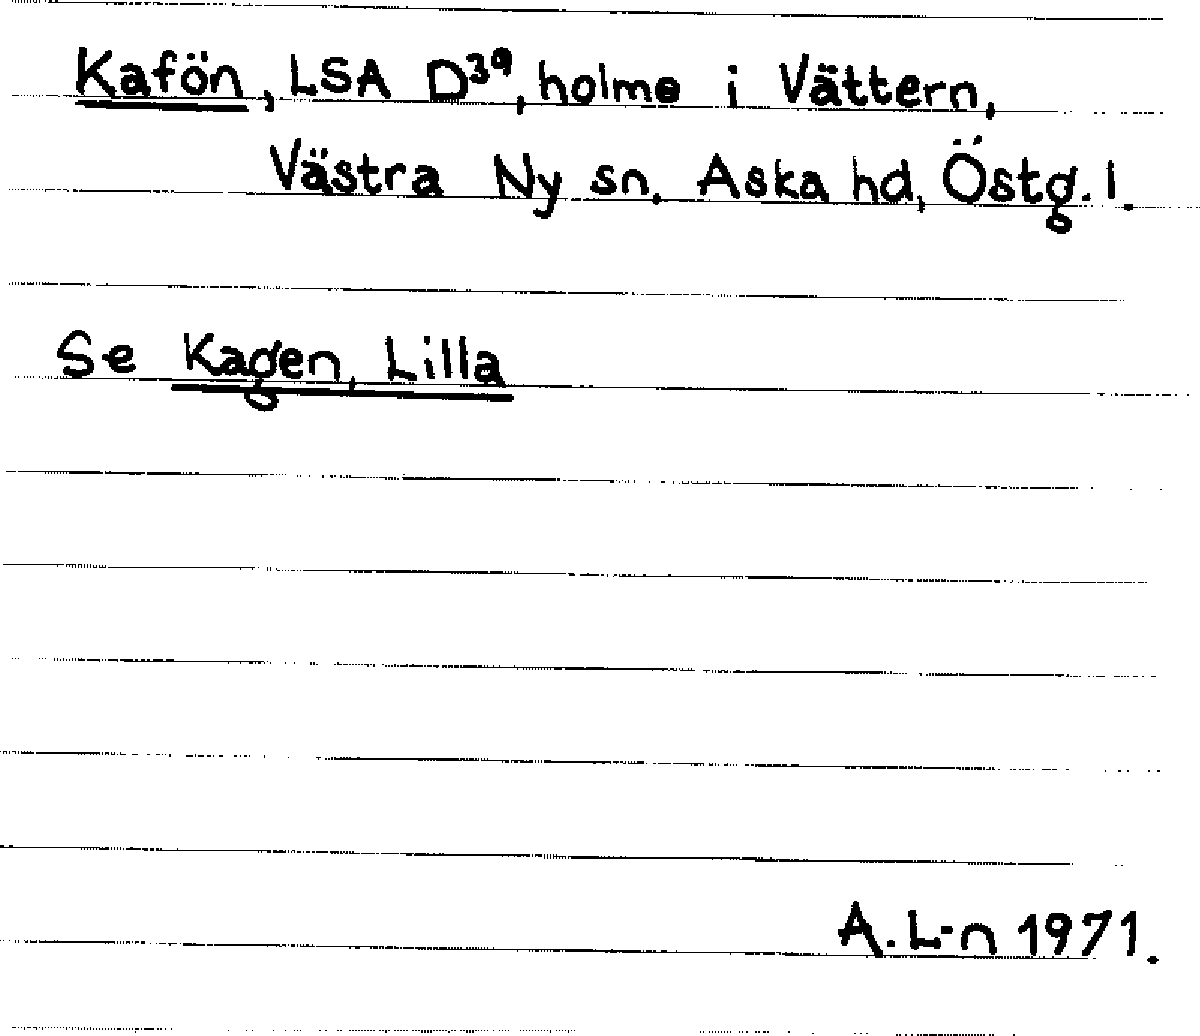 Kafön, LSA D³⁹, holme i Vättern,
Västra Ny sn, Aska hd, Östg. l.
Se Kagen, Lilla
A. L-n 1971.